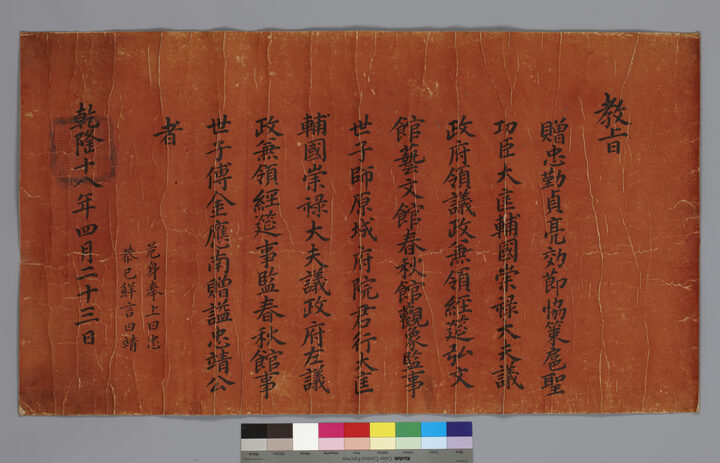 教旨
贈忠勤貞亮効節協策扈聖
功臣大匡輔國崇祿大夫議
政府領議政兼領經筵弘文
館藝文館春秋館觀象監事
世子師原城府院君行大匡
輔國崇祿大夫議政府左議
政兼領經筵事監春秋館事
世子傅金應南贈諡忠靖公
者
危身奉上曰忠
恭己鮮言曰靖
乾隆十八年四月二十三日
Kodak Color Control Patches